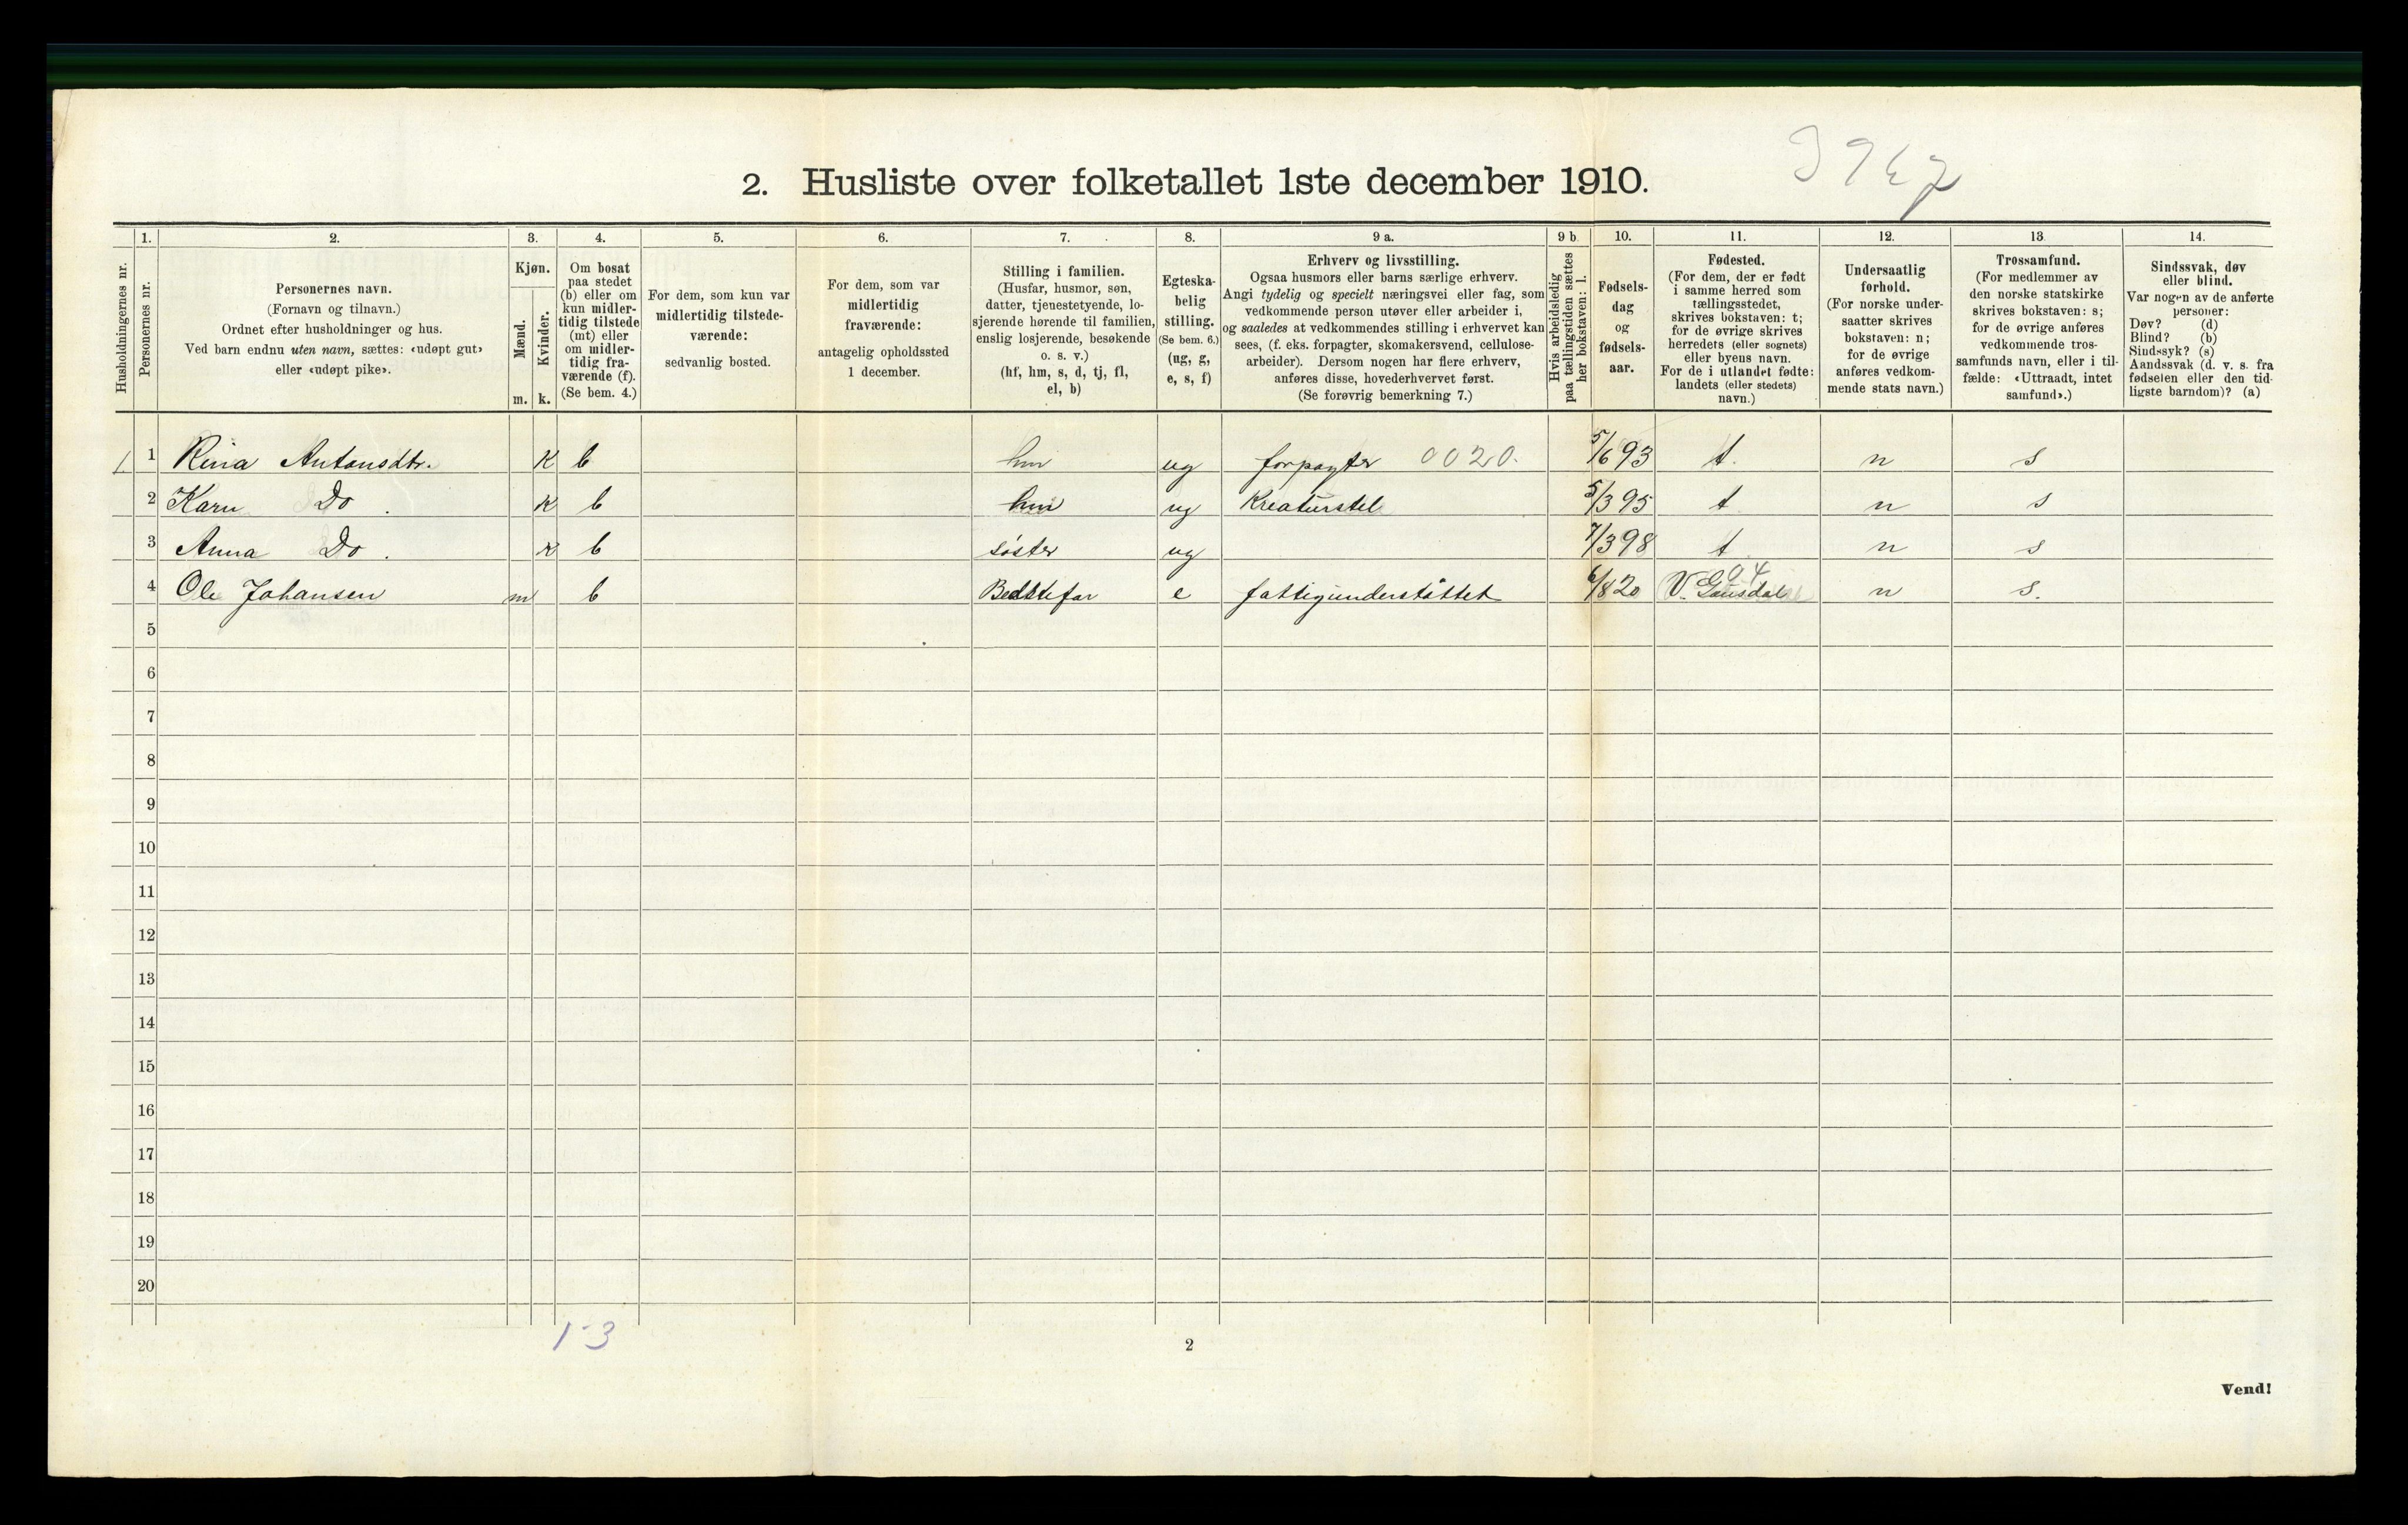 2. Husliste over folketallet 1ste december 1910.
Husholdningernes nr.
1. Personernes nr.
2. Personernes navn.
(Fornavn og tilnavn.)
Ordnet efter husholdninger og hus.
Ved barn endnu uten navn, sættes: «udøpt gut»
eller «udøpt pike».
3. Kjøn.
Mænd. m.
Kvinder. k.
4. Om bosat
paa stedet
(b) eller om
kun midler-
tidig tilstede
(mt) eller
om midler-
tidig fra-
værende (f).
(Se bem. 4.)
5. For dem, som kun var
midlertidig tilstede-
værende:
sedvanlig bosted.
6. For dem, som var
midlertidig
fraværende:
antagelig opholdssted
1 december.
7. Stilling i familien.
(Husfar, husmor, søn,
datter, tjenestetyende, lo-
sjerende hørende til familien,
enslig losjerende, besøkende
o. s. v.)
(hf, hm, s, d, tj, fl,
el, b)
8. Egteska-
belig
stilling.
(Se bem. 6.)
(ug, g,
e, s, f)
9 a. Erhverv og livsstilling.
Ogsaa husmors eller barns særlige erhverv.
Angi tydelig og specielt næringsvei eller fag, som
vedkommende person utøver eller arbeider i,
og saaledes at vedkommendes stilling i erhvervet kan
sees, (f. eks. forpagter, skomakersvend, cellulose-
arbeider). Dersom nogen har flere erhverv,
anføres disse, hovederhvervet først.
(Se forøvrig bemerkning 7.)
9 b Hvis arbeidsledig
paa tællingstiden sættes
her bokstaven: l.
10. Fødsels-
dag
og
fødsels-
aar.
11. Fødested.
(For dem, der er født
i samme herred som
tællingsstedet,
skrives bokstaven: t;
for de øvrige skrives
herredets (eller sognets)
eller byens navn.
For de i utlandet fødte:
landets (eller stedets)
navn.)
12. Undersaatlig
forhold.
(For norske under-
saatter skrives
bokstaven: n;
for de øvrige
anføres vedkom-
mende stats navn.)
13 Trossamfund.
(For medlemmer av
den norske statskirke
skrives bokstaven: s;
for de øvrige anføres
vedkommende tros-
samfunds navn, eller i til-
fælde: «Uttraadt, intet
samfund».)
14. Sindssvak, døv
eller blind.
Var nogen av de anførte
personer:
Døv? (d)
Blind? (b)
Sindssyk? (s)
Aandssvak (d. v. s. fra
fødselen eller den tid-
ligste barndom)? (a)
1 1 Rina Antonsdtr. K b hm ug forpagter 0020. 5/6 93 t. n s
2 Karn Do . K b ug Kreaturstel 5/3 95 t n s
3 Anna Do . K b søster ug 7/3 98 t n s
4 Ole Johansen m b Bedstefar e fattigunderstøttet 6/8 20 V. Gausdal n s.
5
6
7
8
9
10
11
12
13
14
15
16
17
18
19
20
1-3
2
Vend!